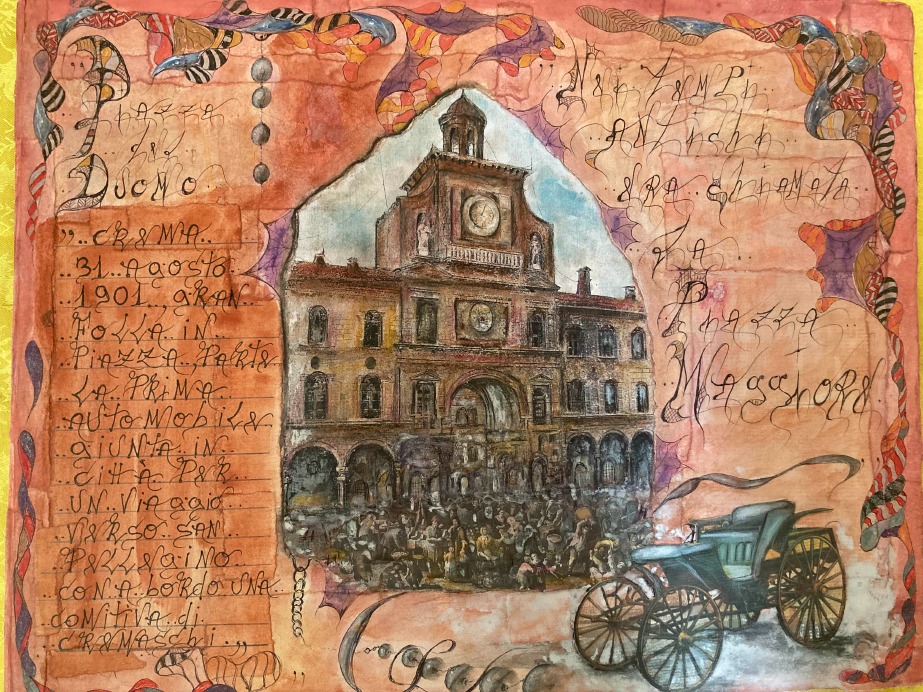 Piazza
del
Duomo
„ CREMA
31 Agosto
1901 gran
folla in
Piazza Parte
la prima
automobile
giunta in
città per
un viaggio
verso San
Pellegrino
con a bordo una
comitiva di
cremaschi „
„ Nei tempi
antichi
era chiamata
la
Piazza
Maggiore